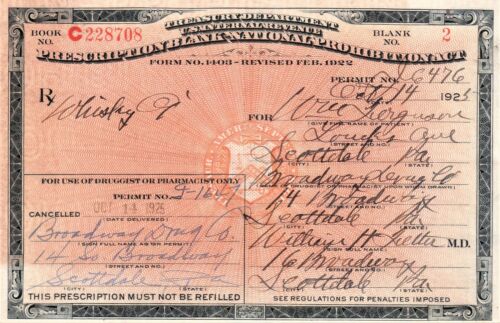 TREASURY DEPARTMENT
U.S. INTERNAL REVENUE
BOOK NO. C228708
BLANK NO. 2
PRESCRIPTION BLANK-NATIONAL PROHIBITION ACT
FORM NO. 1403 - REVISED FEB. 1922
PERMIT NO. 6476
Rx
Whisky
Oct 14 1925
FOR Wm Ferguson
(GIVE FULL NAME OF PATIENT)
Loucks Ave
(STREET AND NO.)
Scottdale Pa
(CITY) (STATE)
Broadway Drug Co
(DRUGGIST OR PHARMACIST UPON WHOM DRAWN)
14 Broadway
(STREET AND NO.)
Scottdale Pa
(CITY) (STATE)
William H
M.D.
(SIGN FULL NAME)
16 Broadway
(STREET AND NO.)
Scottdale Pa
(CITY) (STATE)
FOR USE OF DRUGGIST OR PHARMACIST ONLY
PERMIT NO. 1647
OCT 14 1925
CANCELLED
(DATE DELIVERED)
Broadway Drug Co.
(SIGN FULL NAME AS ON PERMIT)
14 So Broadway
(STREET AND NO.)
Scottdale
(CITY) (STATE)
THIS PRESCRIPTION MUST NOT BE REFILLED
SEE REGULATIONS FOR PENALTIES IMPOSED